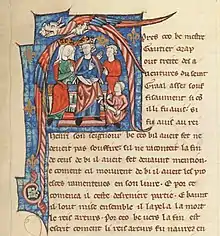 Pres ceo ke mestre
Gautier Map
out treite des a
ventures du seint
Graal asses souf
fisaument si cū
il li fu avis si
fu avis au rei
henri son seignour ke ceo ke il aveit fet ne
deveit pas souffire sil ne racontoit la fin
de ceus de ki il aveit fet devant mention
coment il morurent de ki il aveit les pro
esces ramentevues en son livre. E por ceo
comenca il ceste derreine partie. E kant
il lout mise ensemble il lapela la mort
le rei artur. Por ceo ke vers la fin est
escrit coment li reis artur fu navrez en